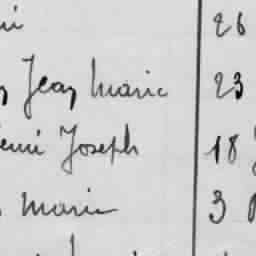 26
Jean Marie 23
Joseph 18
Marie 3